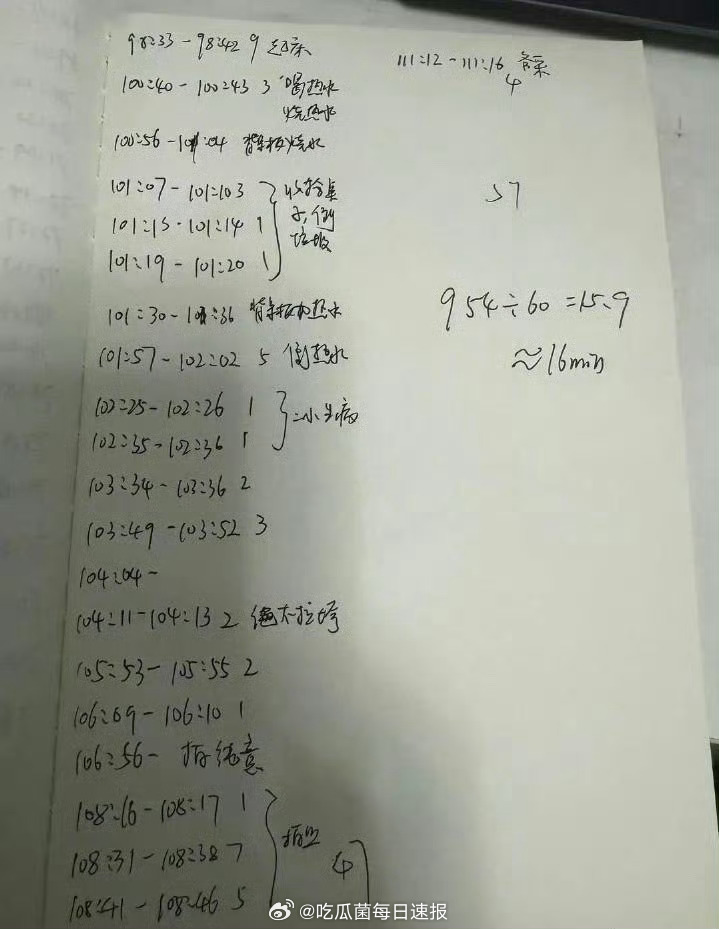 98:33 - 98:42 9 起床
100:40 - 100:43 3 喝热水
烧热水
100:56 - 101:04 背景板烧水
101:07 - 101:103
101:13 - 101:14 1
101:19 - 101:20 1
收拾桌
子,倒
垃圾
101:30 - 101:36 背景板加热水
101:57 - 102:02 5 倒热水
102:25 - 102:26 1
102:35 - 102:36 1
二小生病
103:34 - 103:36 2
103:49 - 103:52 3
104:04 -
104:11 - 104:13 2
105:53 - 105:55 2
106:09 - 106:10 1
106:56 -
108:16 - 108:17 1
108:31 - 108:38 7
108:41 - 108:46 5
4
111:12 - 111:16 备菜
4
57
954÷60=15.9
≈16min
@吃瓜菌每日速报